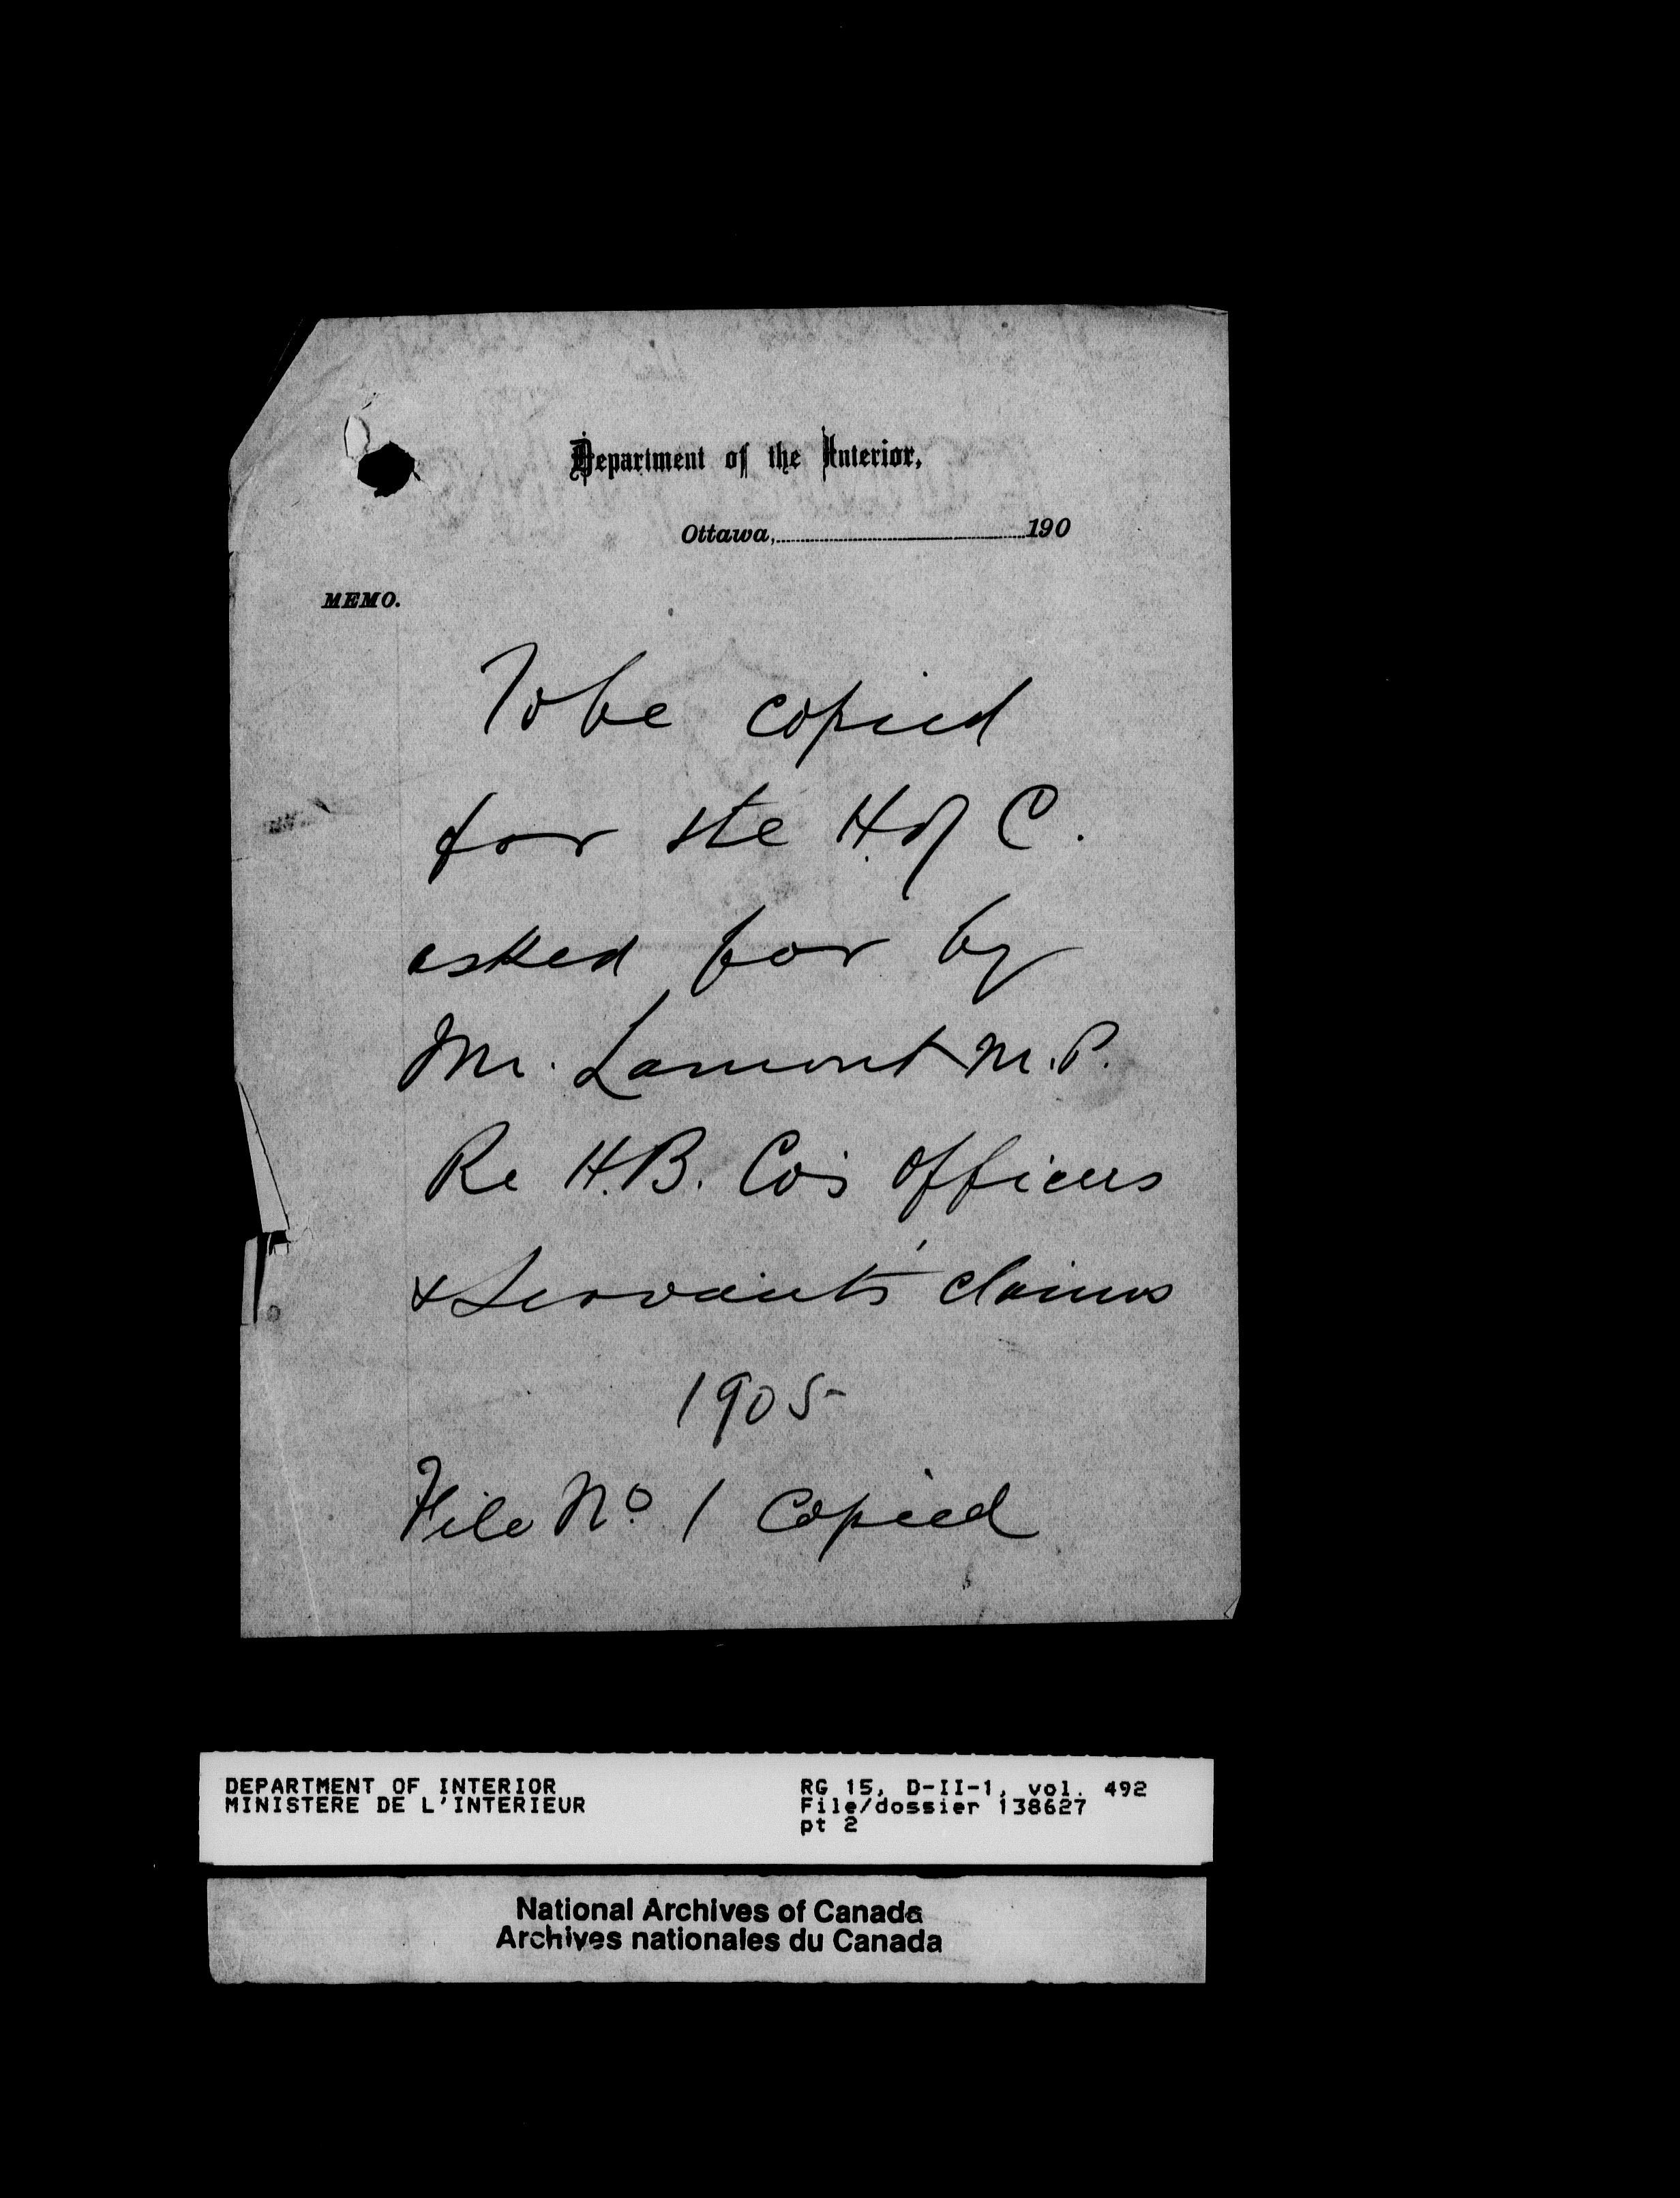 Department of the Interior,
Ottawa, 190
MEMO.
To be copied
for the H. of C.
asked for by
Mr. Lamont M.P.
Re H.B. Co's Officers
& Servants' claims
1905
File No. 1 Copied
DEPARTMENT OF INTERIOR
MINISTERE DE L'INTERIEUR
RG 15, D-II-1, vol. 492
File/dossier 138627
pt 2
National Archives of Canada
Archives nationales du Canada